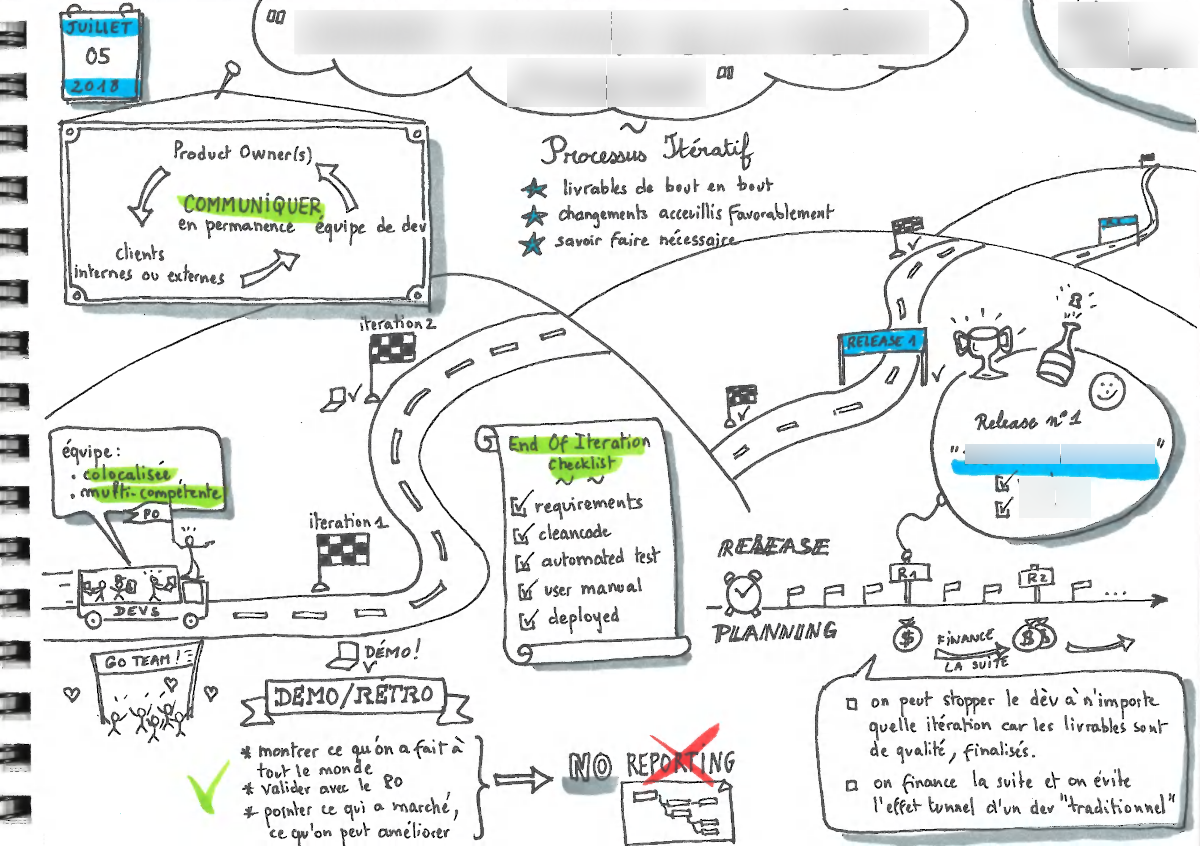 JUILLET
05
2018
Product Owner(s)
COMMUNIQUER
en permanence
équipe de dev
clients
internes ou externes
Processus Itératif
livrables de bout en bout
changements acceuillis favorablement
savoir faire nécessaire
iteration 2
RELEASE 1
équipe :
. colocalisée
. multi-compétente
PO
DEVS
iteration 1
End Of Iteration
checklist
requirements
cleancode
automated test
user manual
deployed
Release n°1
RELEASE
PLANNING
R1
R2
...
$
FINANCE
LA SUITE
$ $
GO TEAM !
DÉMO!
DEMO/RÉTRO
* montrer ce qu'on a fait à
tout le monde
* valider avec le PO
* pointer ce qui a marché,
ce qu'on peut améliorer
NO REPORTING
on peut stopper le dèv à n'importe
quelle itération car les livrables sont
de qualité, finalisés.
on finance la suite et on évite
l'effet tunnel d'un dev "traditionnel"